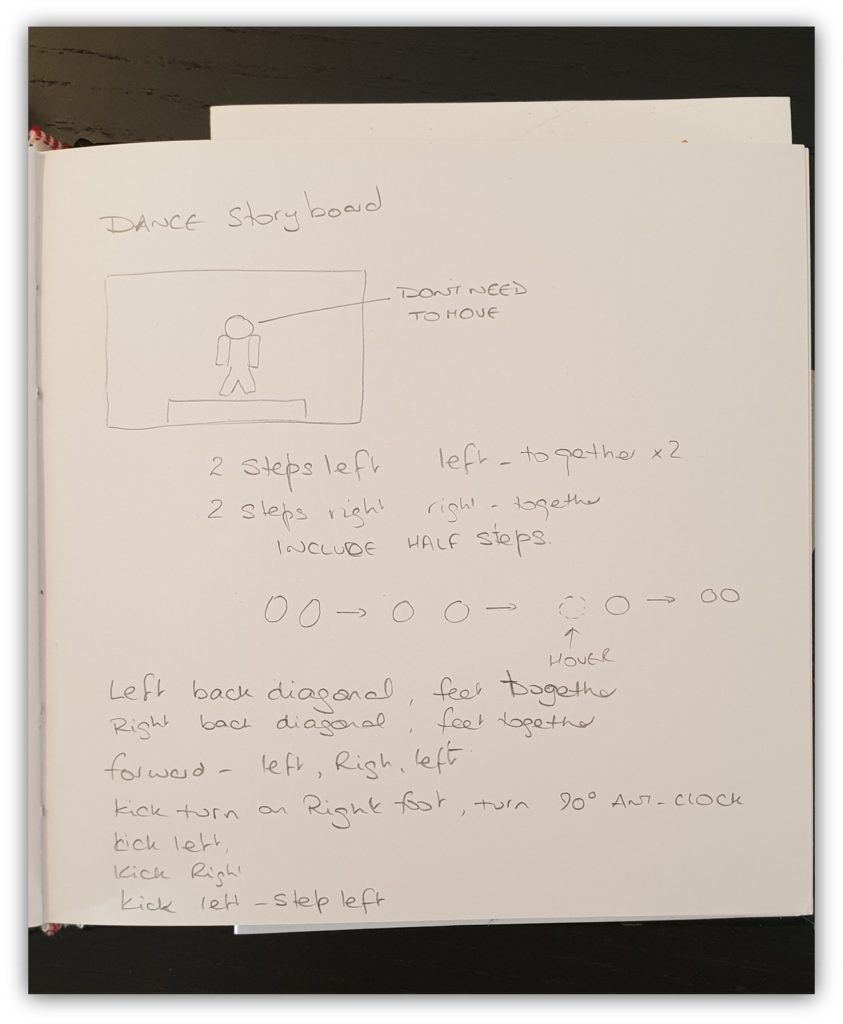 DANCE Storyboard
DON'T NEED
TO MOVE
2 steps left left - together x2
2 steps right right - together
INCLUDE HALF steps.
HOVER
Left back diagonal, feet together
Right back diagonal, feet together
forward - left, Righ, left
kick turn on Right foot, turn 90° ANT-CLOCK
kick left,
kick Right
kick left - step left